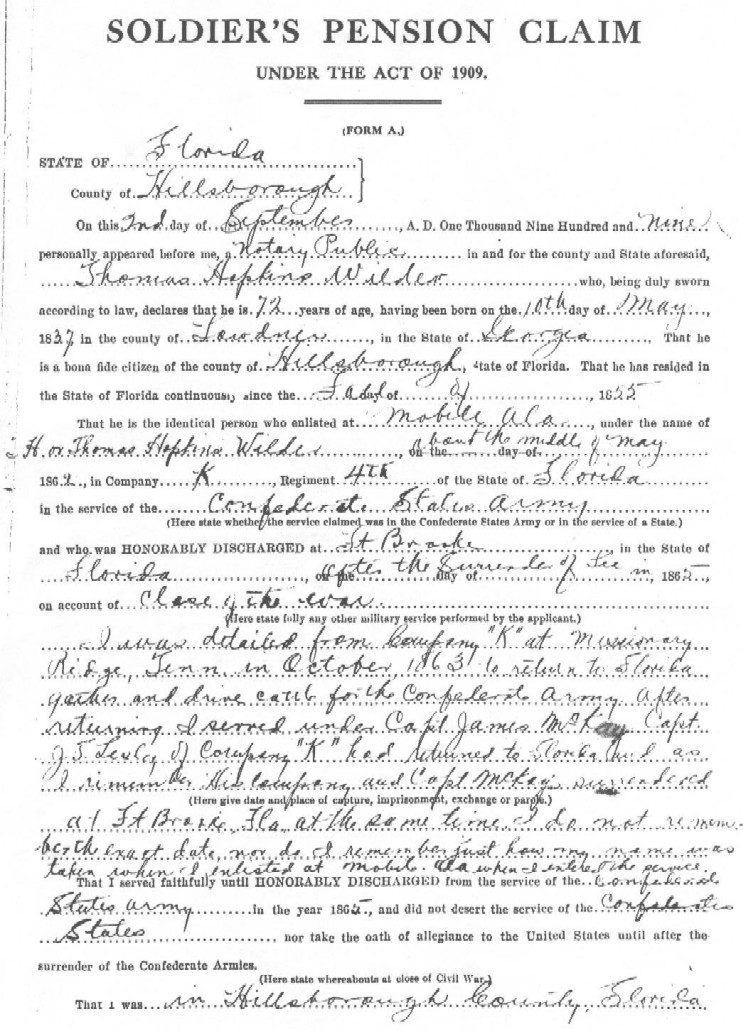 SOLDIER'S PENSION CLAIM
UNDER THE ACT OF 1909.
(FORM A.)
STATE OF Florida
County of Hillsborough
On this 2nd day of September, A. D. One Thousand Nine Hundred and nine
personally appeared before me, a Notary Public in and for the county and State aforesaid,
Thomas Hopkins Wilder who, being duly sworn
according to law, declares that he is 72 years of age, having been born on the 10th day of May,
1837 in the county of Lowdnes, in the State of Georgia. That he
is a bona fide citizen of the county of Hillsborough, State of Florida. That he has resided in
the State of Florida continuously since the Fall day of of, 1855
That he is the identical person who enlisted at Mobile Ala, under the name of
T H or Thomas Hopkins Wilder, on the about the middle of May day of
1862, in Company K, Regiment 4th of the State of Florida
in the service of the Confederate States Army
(Here state whether the service claimed was in the Confederate States Army or in the service of a State.)
and who was HONORABLY DISCHARGED at Ft Brooke in the State of
Florida, on the after the Surrender of Lee in day of, 1865,
on account of Close of the war.
(Here state fully any other military service performed by the applicant.)
I was detailed from Company "K" at Missionary
Ridge, Tenn. in October, 1863 to return to Florida
gather and drive cattle for the Confederate Army After
returning I served under Capt James McKay Capt
J T Lesley of Company "K" had returned to Florida and as
I remember His Company and Capt McKay surrendered
(Here give date and place of capture, imprisonment, exchange or parole.)
at Ft Brooke, Fla. at the same time I do not remem-
ber the exact date, nor do I remember just how my name was
taken when I enlisted at Mobile. Ala when I entered the service.
That I served faithfully until HONORABLY DISCHARGED from the service of the Confederate
States army in the year 1865, and did not desert the service of the Confederate
States nor take the oath of allegiance to the United States until after the
surrender of the Confederate Armies.
(Here state whereabouts at close of Civil War.)
That I was in Hillsborough County, Florida